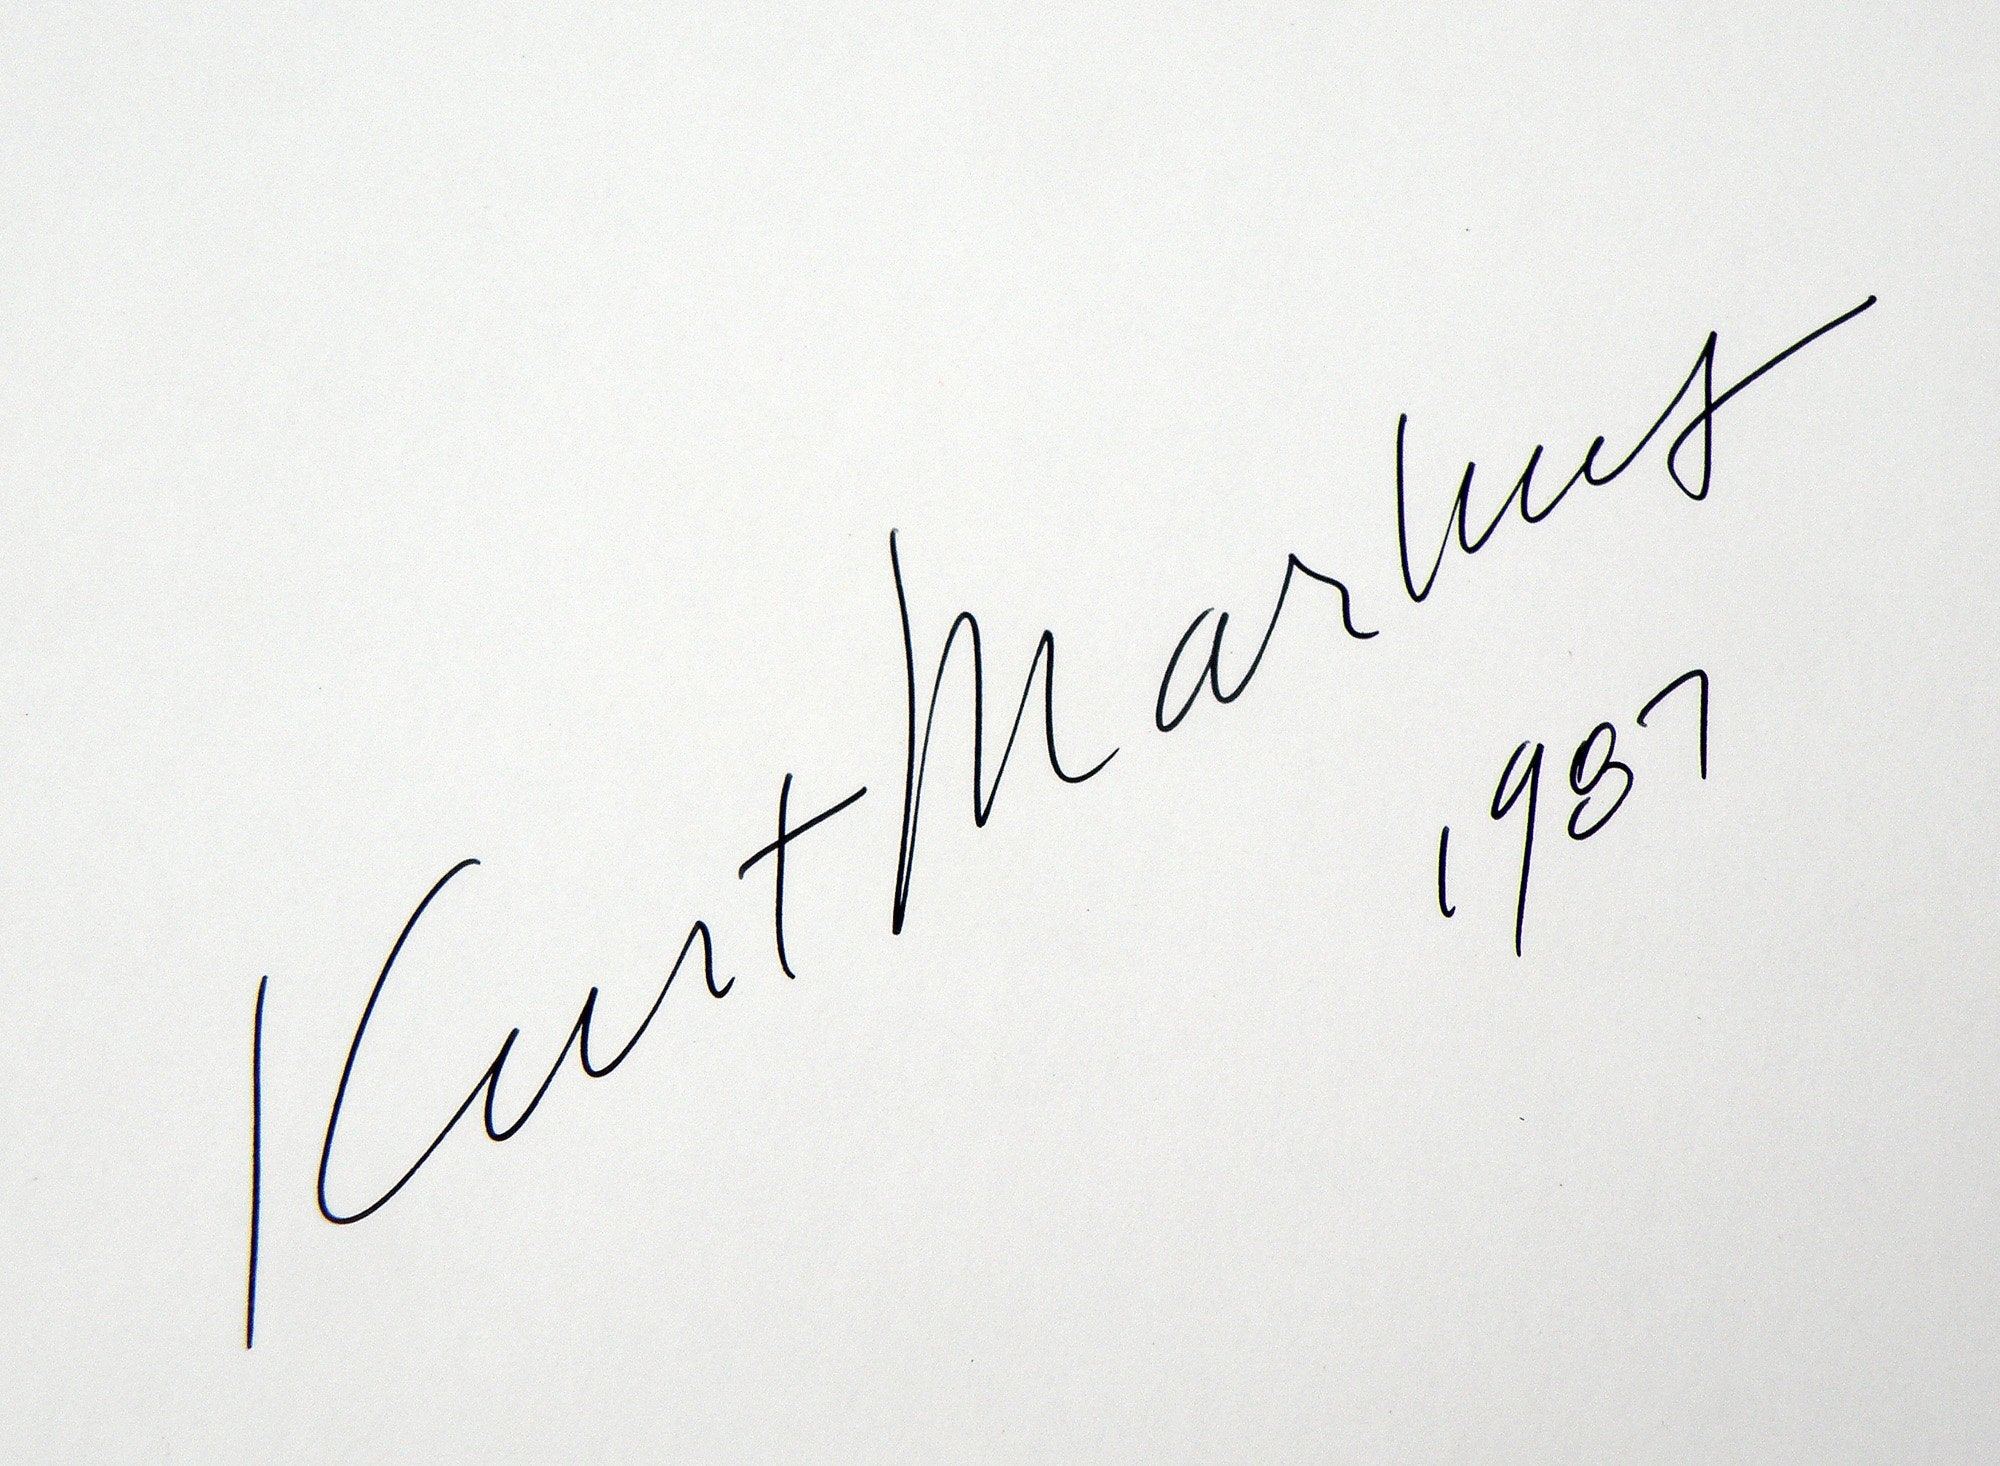 Kurt Markus
1987